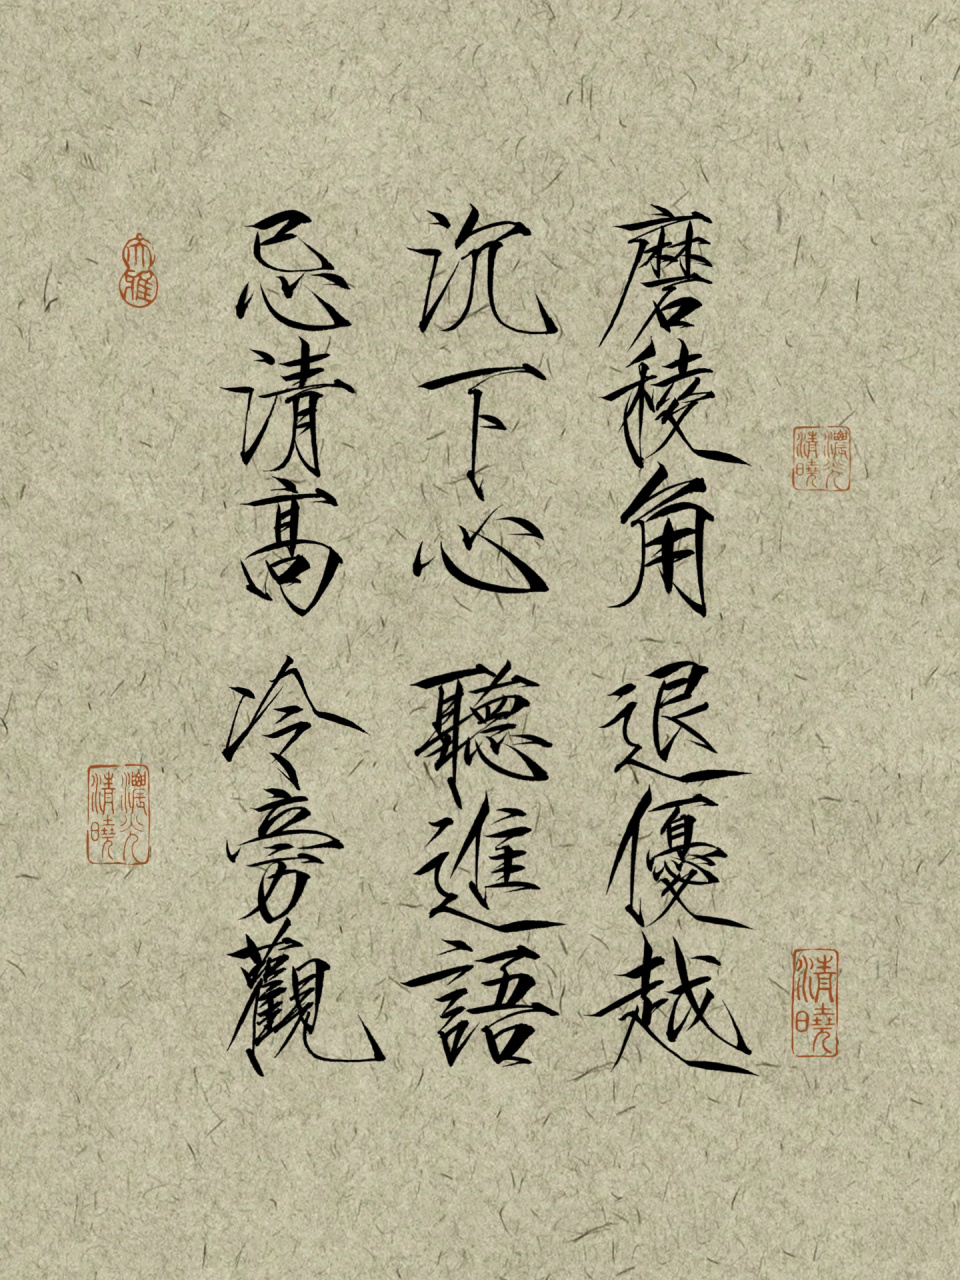 磨稜角 退優越
沉下心 聽進語
忌清高 冷旁觀
濃光清曉
清曉
大雅
濃光清曉